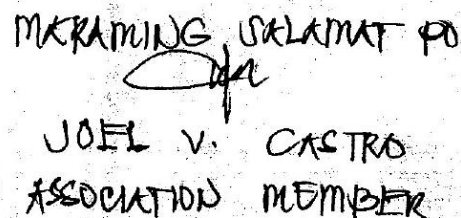 MARAMING SALAMAT PO
JOEL V. CASTRO
ASSOCIATION MEMBER